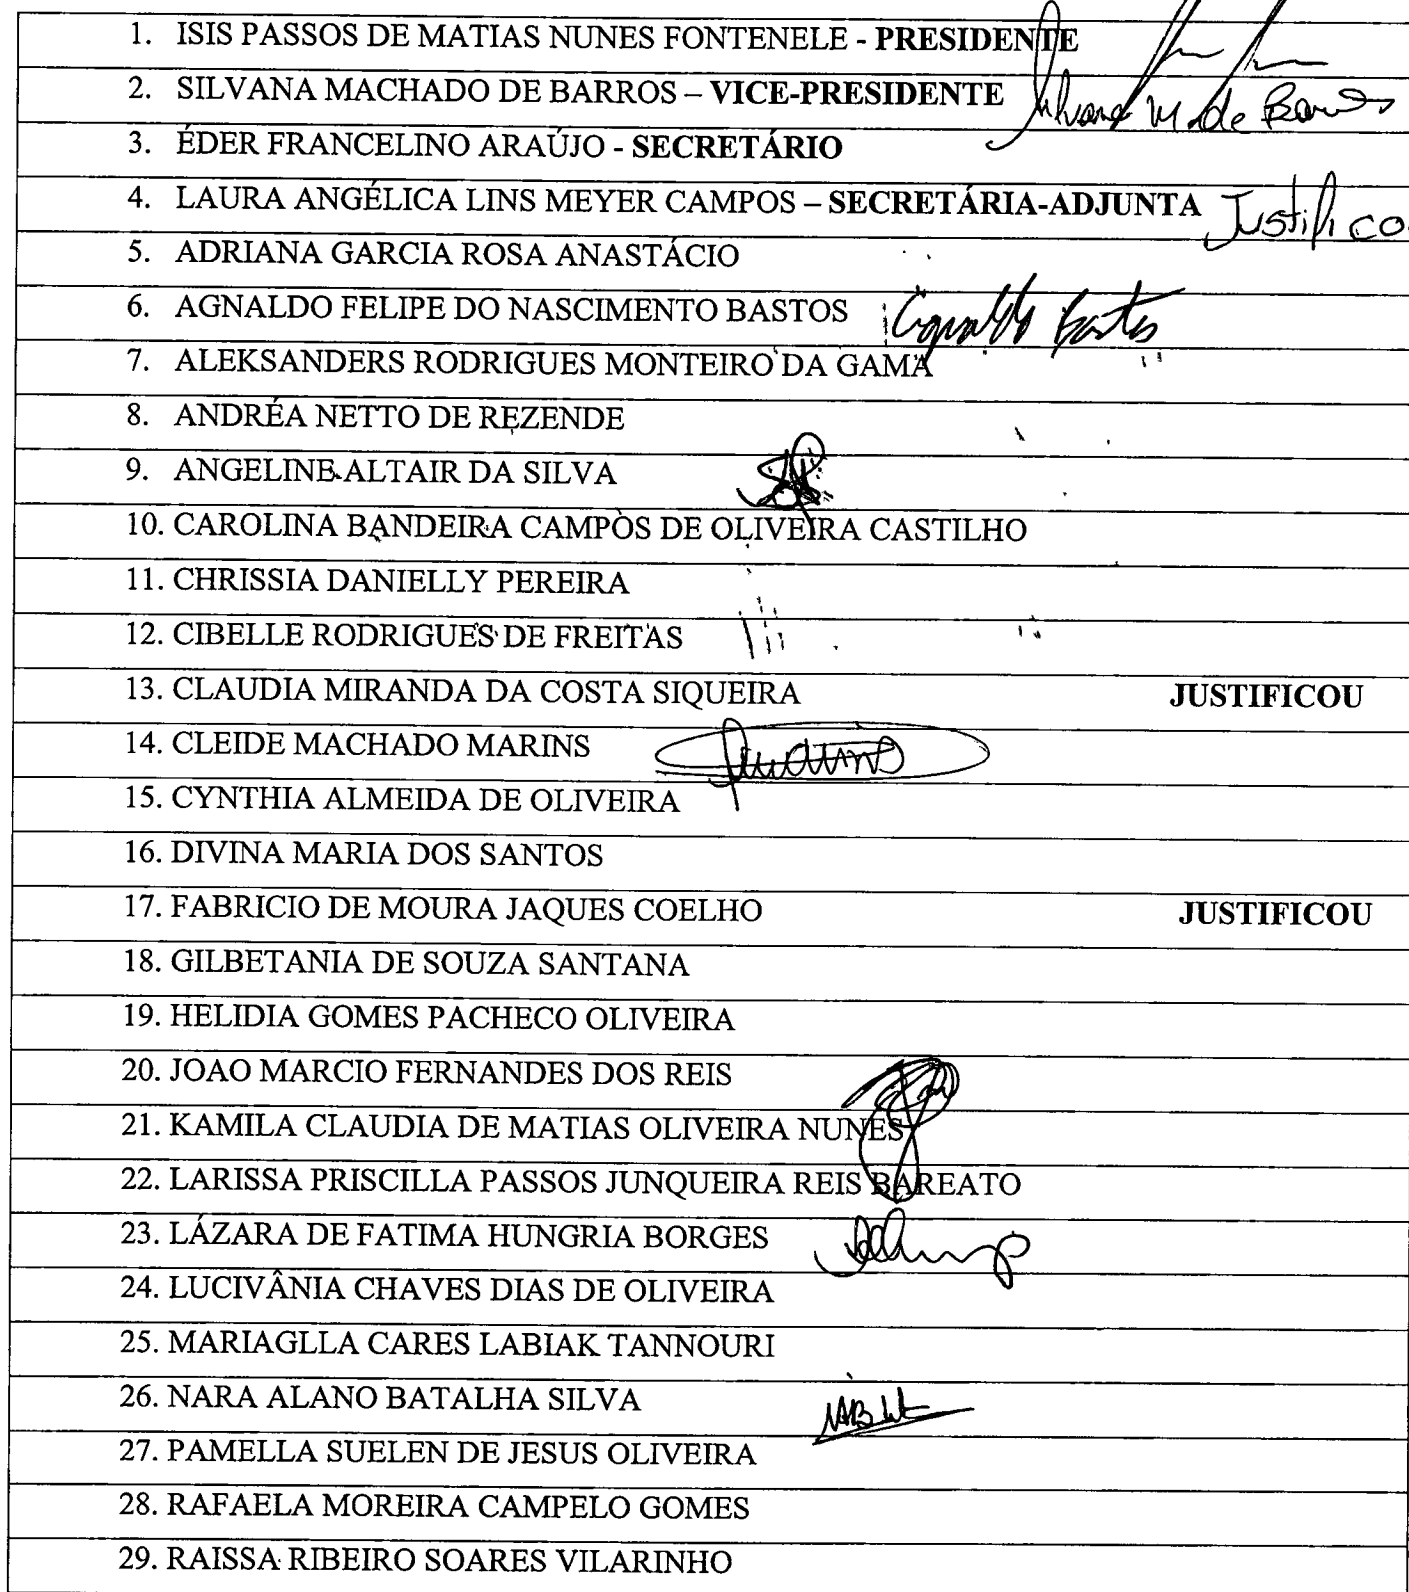 1. ISIS PASSOS DE MATIAS NUNES FONTENELE - PRESIDENTE
2. SILVANA MACHADO DE BARROS – VICE-PRESIDENTE Silvana M. de Barros
3. ÉDER FRANCELINO ARAÚJO - SECRETÁRIO
4. LAURA ANGÉLICA LINS MEYER CAMPOS – SECRETÁRIA-ADJUNTA Justifico
5. ADRIANA GARCIA ROSA ANASTÁCIO
6. AGNALDO FELIPE DO NASCIMENTO BASTOS Agnaldo Bastos
7. ALEKSANDERS RODRIGUES MONTEIRO DA GAMA
8. ANDRÉA NETTO DE REZENDE
9. ANGELINE ALTAIR DA SILVA
10. CAROLINA BANDEIRA CAMPOS DE OLIVEIRA CASTILHO
11. CHRISSIA DANIELLY PEREIRA
12. CIBELLE RODRIGUES DE FREITAS
13. CLAUDIA MIRANDA DA COSTA SIQUEIRA JUSTIFICOU
14. CLEIDE MACHADO MARINS
15. CYNTHIA ALMEIDA DE OLIVEIRA
16. DIVINA MARIA DOS SANTOS
17. FABRICIO DE MOURA JAQUES COELHO JUSTIFICOU
18. GILBETANIA DE SOUZA SANTANA
19. HELIDIA GOMES PACHECO OLIVEIRA
20. JOAO MARCIO FERNANDES DOS REIS
21. KAMILA CLAUDIA DE MATIAS OLIVEIRA NUNES
22. LARISSA PRISCILLA PASSOS JUNQUEIRA REIS BAREATO
23. LÁZARA DE FATIMA HUNGRIA BORGES
24. LUCIVÂNIA CHAVES DIAS DE OLIVEIRA
25. MARIAGLLA CARES LABIAK TANNOURI
26. NARA ALANO BATALHA SILVA
27. PAMELLA SUELEN DE JESUS OLIVEIRA
28. RAFAELA MOREIRA CAMPELO GOMES
29. RAISSA RIBEIRO SOARES VILARINHO